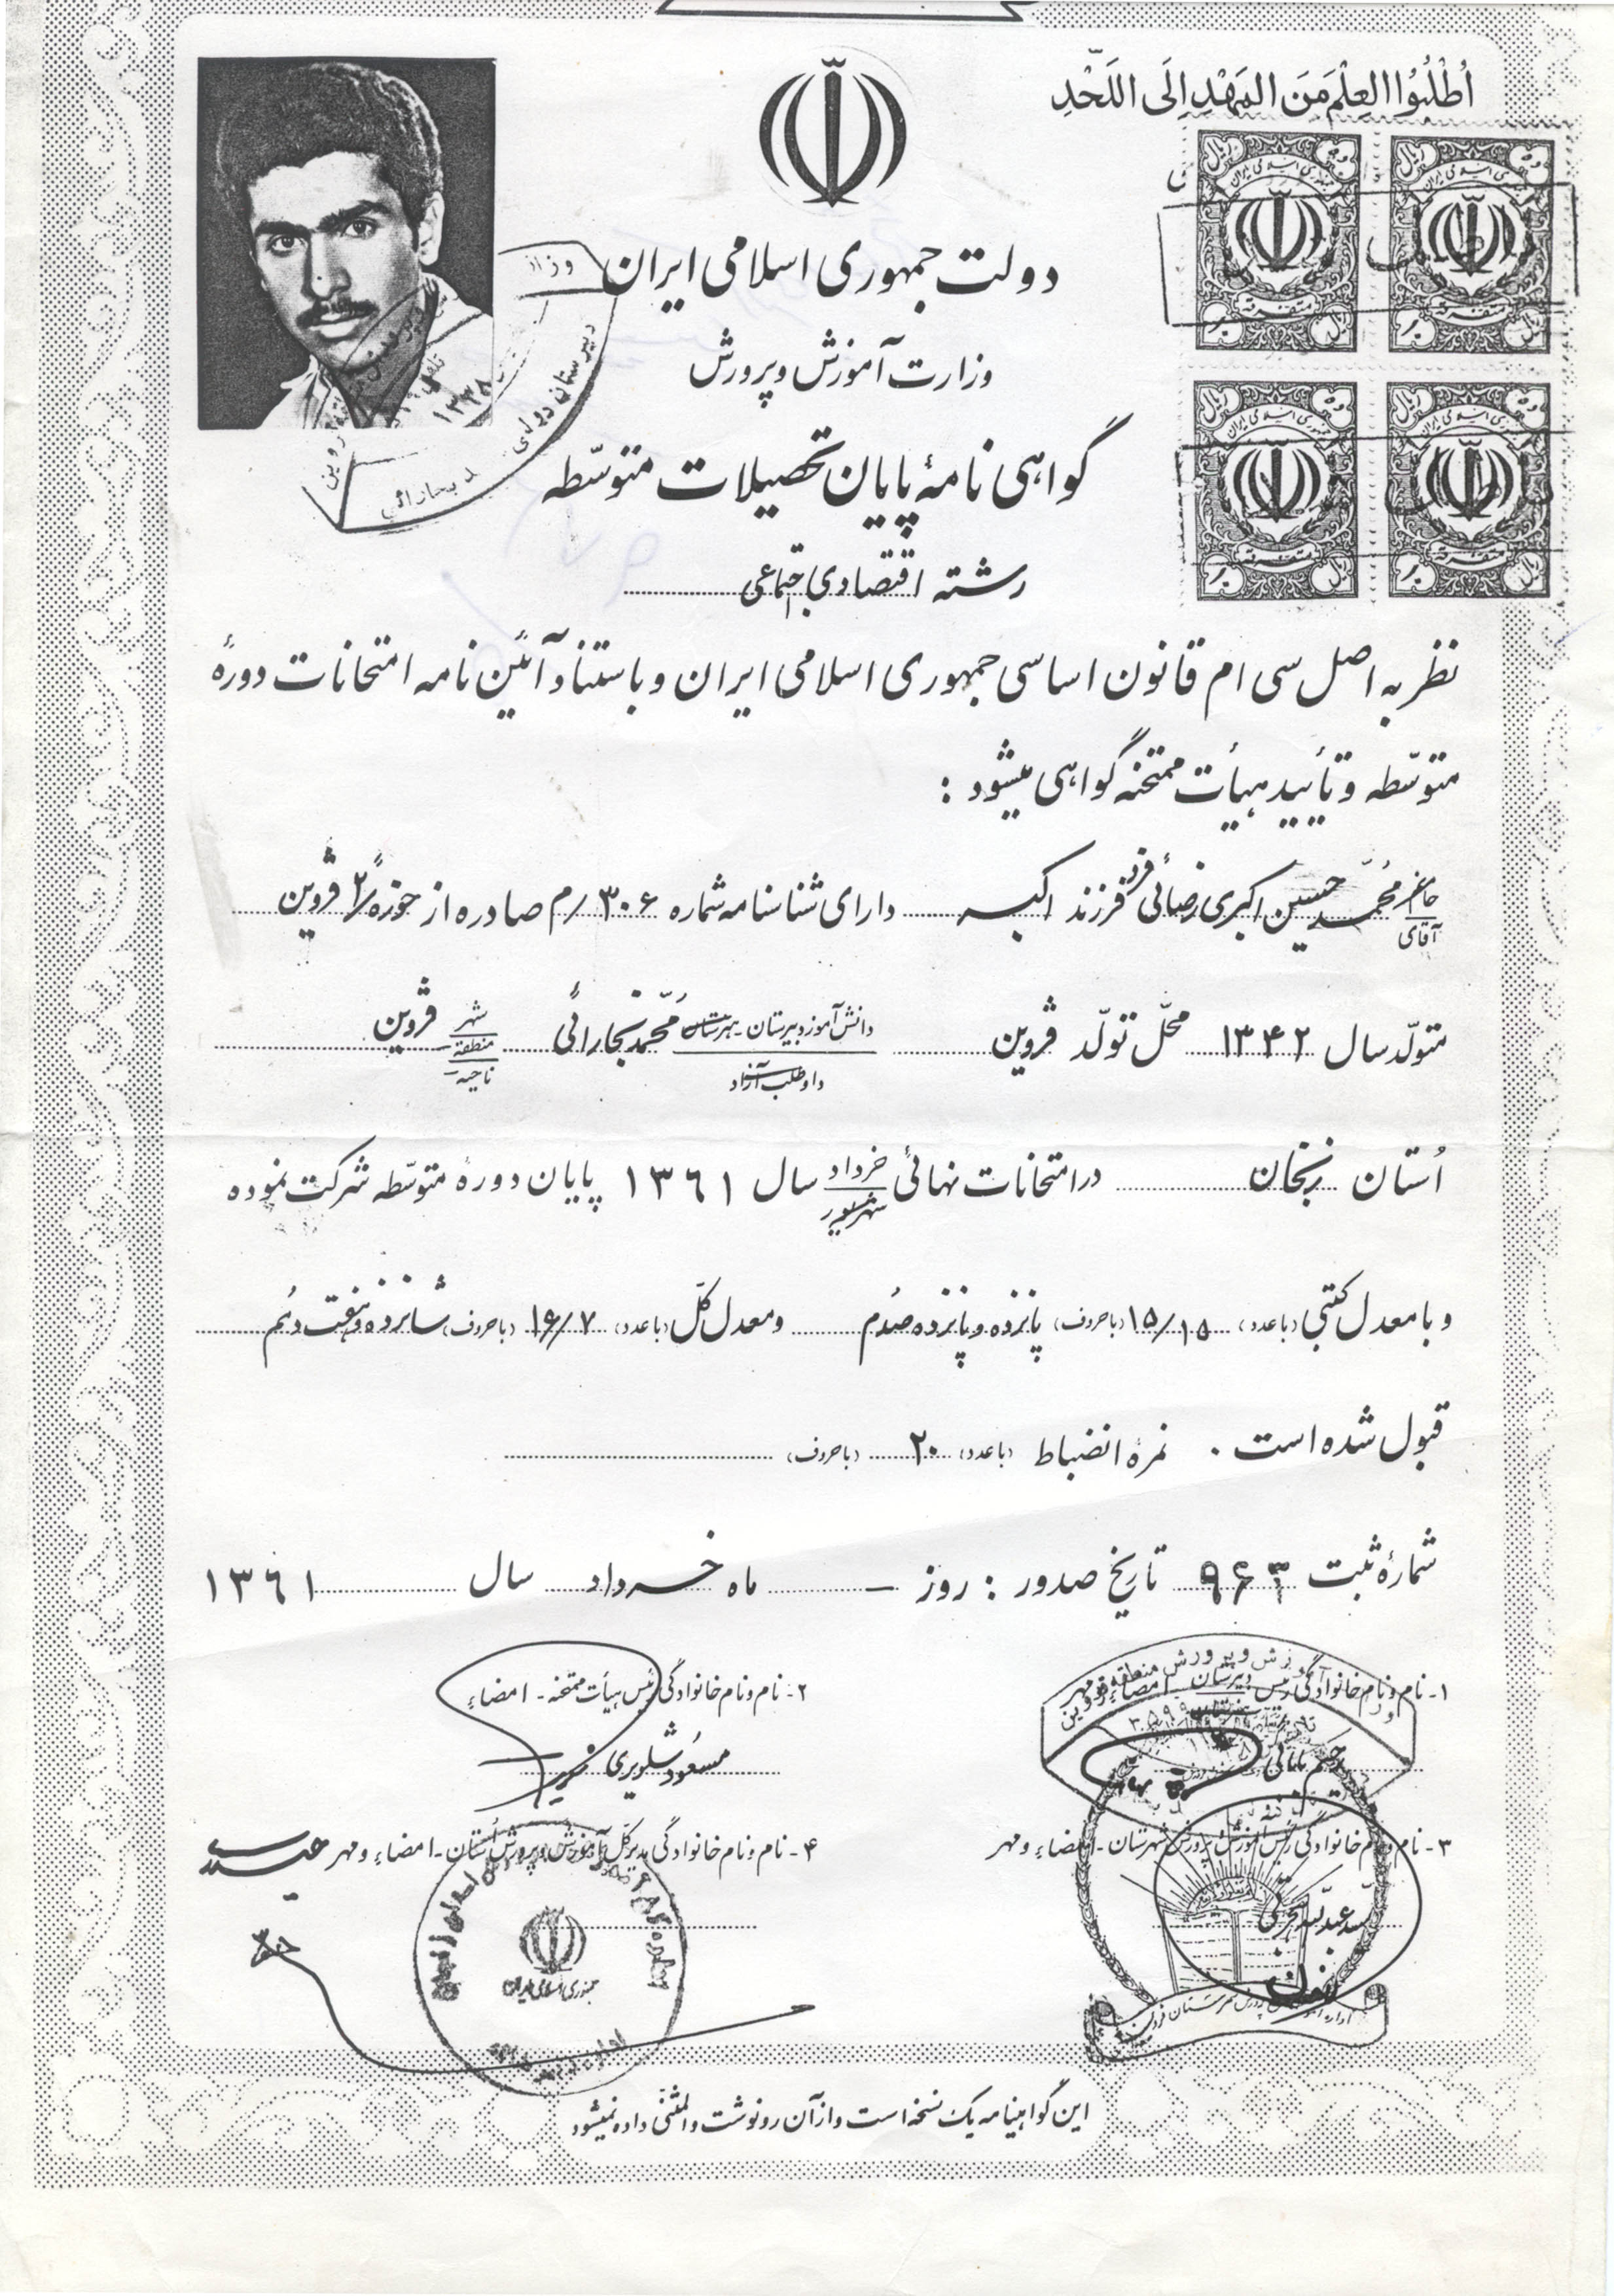 اُطْلُبُوا العِلْمَ مَنَ المَهْدِ اِلَی اللَّحْدِ
دولت جمهوری اسلامی ایران
وزارت آموزش و پرورش
گواهی نامهٔ پایان تحصیلات متوسّطه
رشته اقتصادی اجتماعی
نظر به اصل سی ام قانون اساسی جمهوری اسلامی ایران و باستناد آئین نامه امتحانات دورهٔ
متوسّطه و تأیید هیأت ممتحنه گواهی میشود :
خانم آقای محمّد حسین اکبری رضائی فرد فرزند اکبر دارای شناسنامه شماره ۳۰۶/م صادره از حوزه ۲ قزوین
متولّد سال ۱۳۴۲ محلّ تولّد قزوین دانش آموز دبیرستان - هنرستان محمّد بخارائی شهر قزوین
داوطلب آزاد منطقه ناحیه
اُستان زنجان در امتحانات نهائی خرداد شهریور سال ۱۳۶۱ پایان دورهٔ متوسّطه شرکت نموده
و با معدل کتبی (با عدد) ۱۵/۱۵ (با حروف) پانزده و پانزده صدم و معدل کلّ (با عدد) ۱۶/۷ (با حروف) شانزده و هفت دهم
قبول شده است . نمره انضباط (با عدد) ۲۰ (با حروف)
شمارهٔ ثبت ۹۶۳ تاریخ صدور : روز – ماه خرداد سال ۱۳۶۱
۱- نام و نام خانوادگی رئیس دبیرستان امضاء و مهر
۲- نام و نام خانوادگی رئیس هیأت ممتحنه - امضاء
مسعود
۳- نام و نام خانوادگی رئیس آموزش و پرورش شهرستان - امضاء و مهر
۴- نام و نام خانوادگی مدیرکلّ آموزش و پرورش اُستان - امضاء و مهر
جمهوری اسلامی ایران
این گواهینامه یک نسخه است و از آن رونوشت و المثنّی داده نمیشود